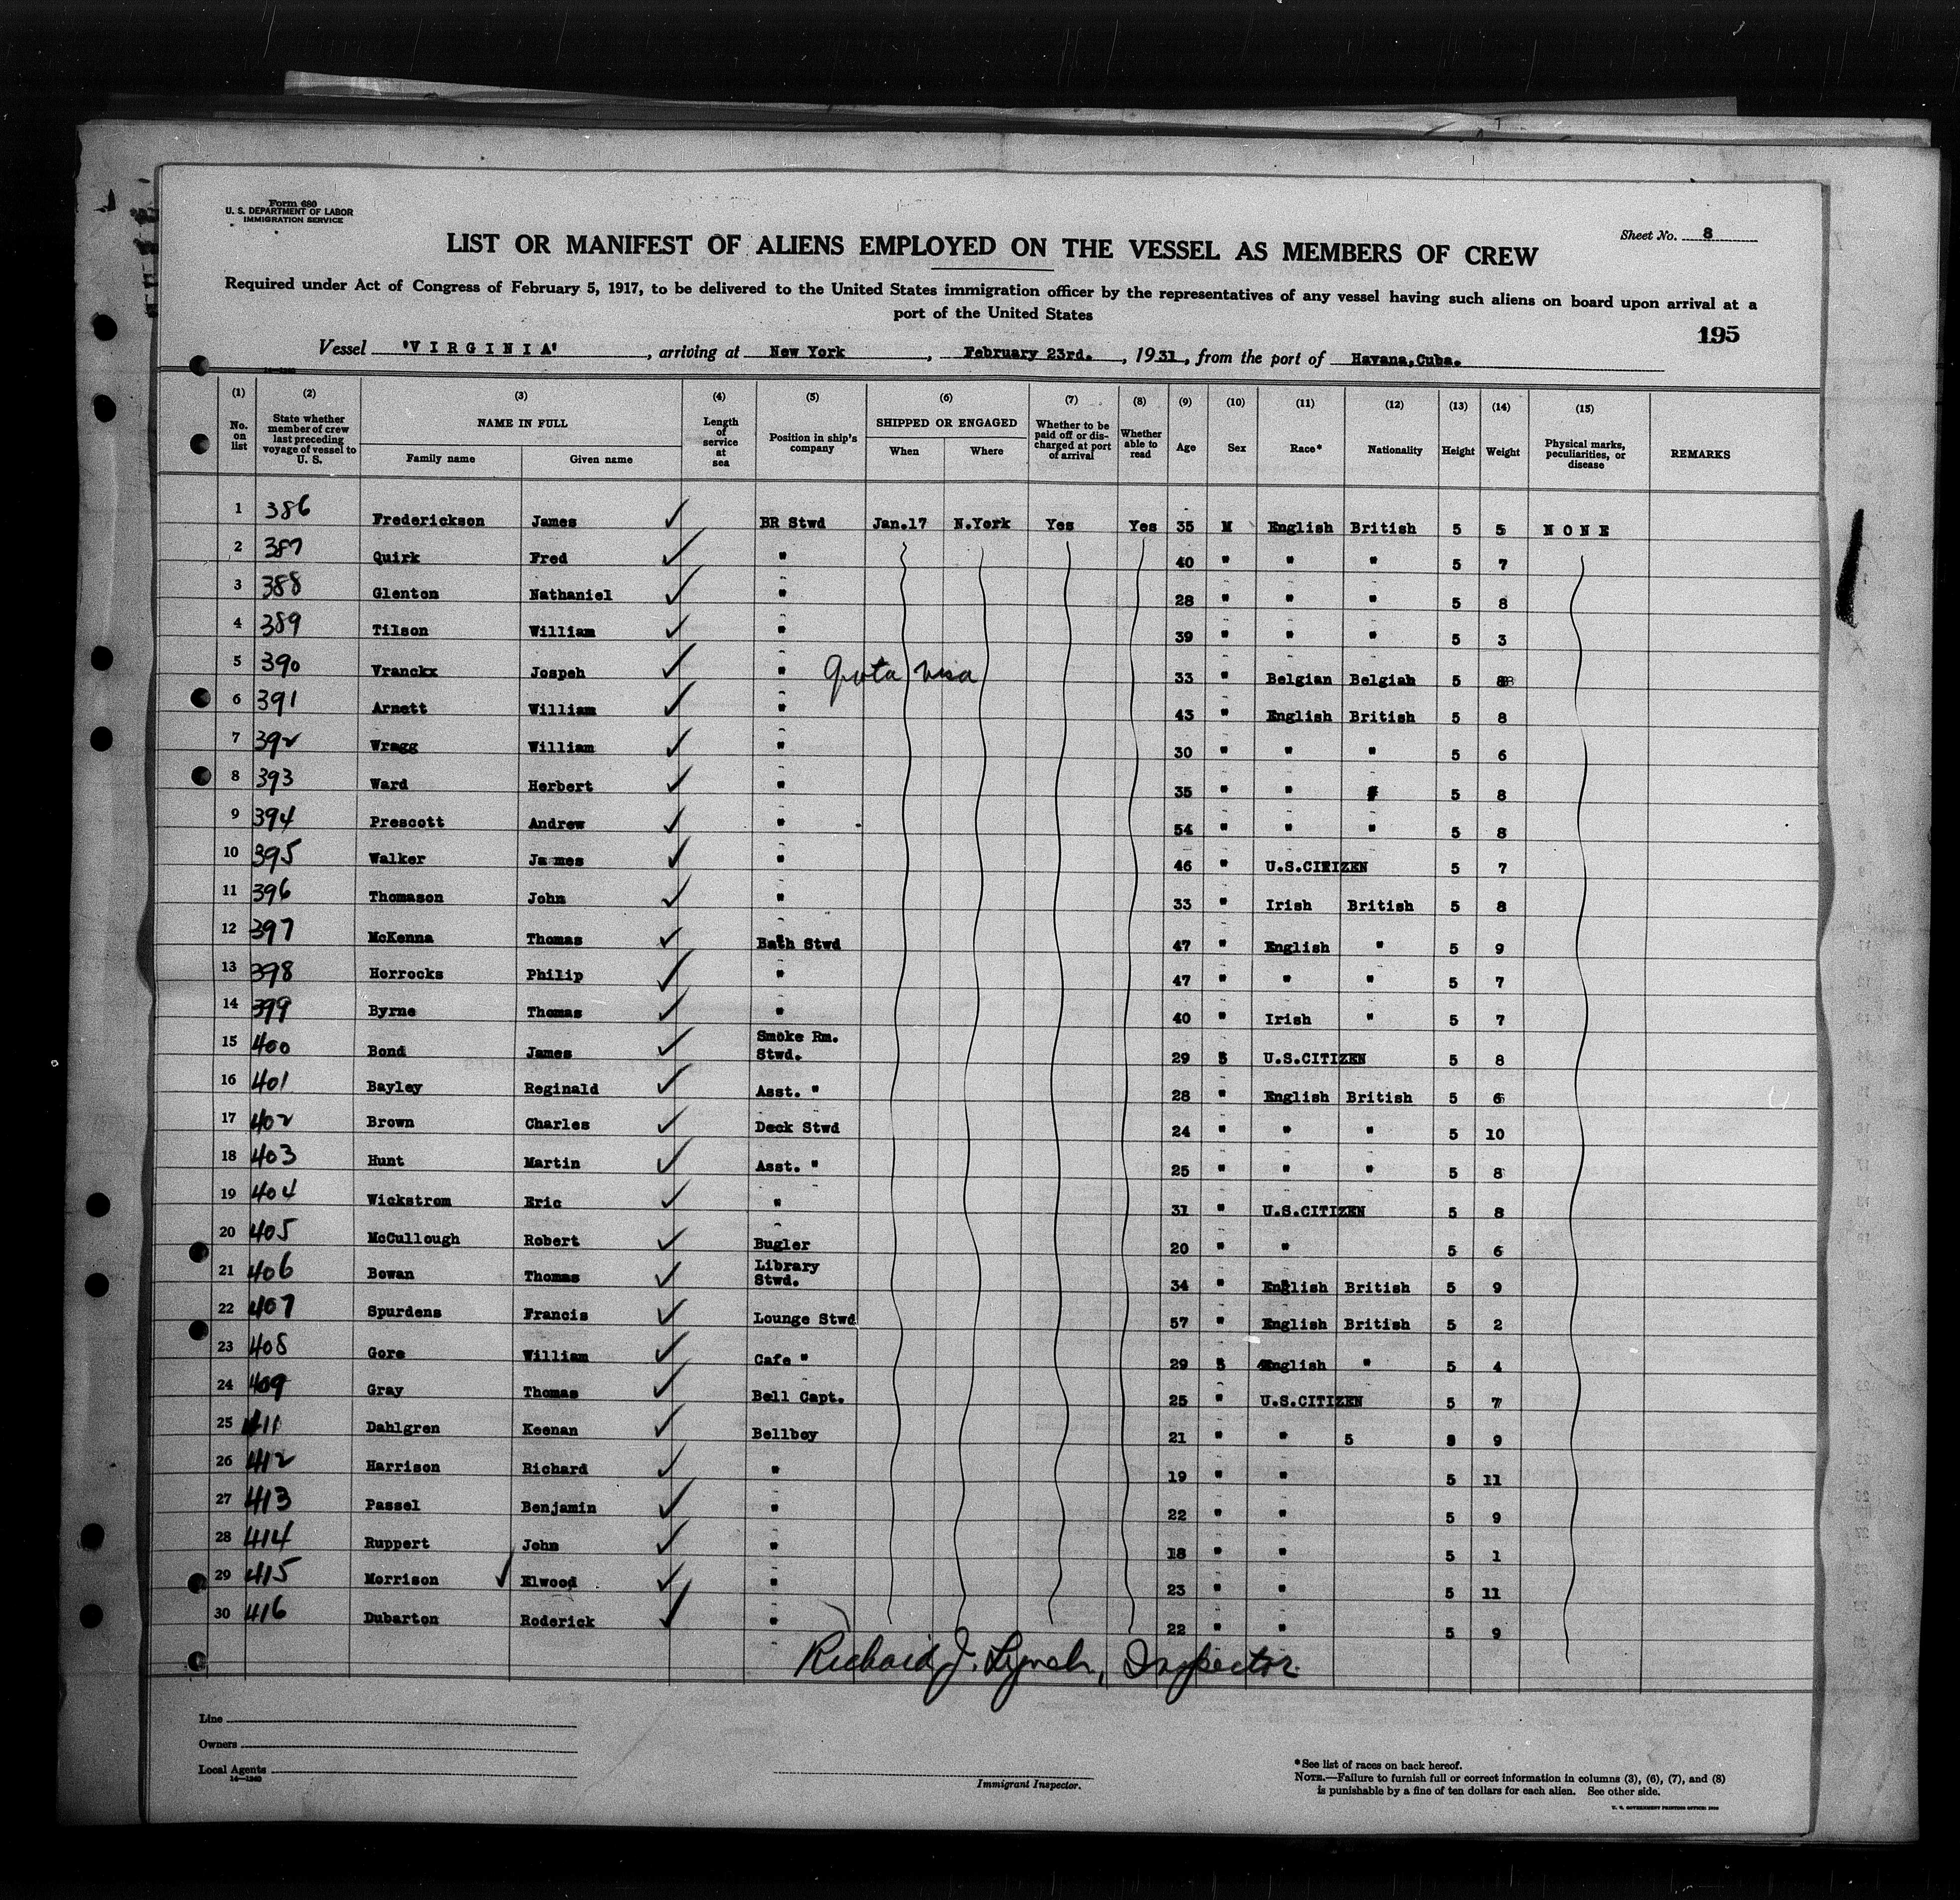 Form 680
U. S. DEPARTMENT OF LABOR
IMMIGRATION SERVICE
Sheet No. 8
LIST OR MANIFEST OF ALIENS EMPLOYED ON THE VESSEL AS MEMBERS OF CREW
Required under Act of Congress of February 5, 1917, to be delivered to the United States immigration officer by the representatives of any vessel having such aliens on board upon arrival at a
port of the United States
195
Vessel 'VIRGINIA', arriving at New York, February 23rd., 1931, from the port of Havana,Cuba.
(1) (2) (3) (4) (5) (6) (7) (8) (9) (10) (11) (12) (13) (14) (15)
No. on list State whether member of crew last preceding voyage of vessel to U. S. NAME IN FULL Family name Given name Length of service at sea Position in ship's company SHIPPED OR ENGAGED When Where Whether to be paid off or discharged at port of arrival Whether able to read Age Sex Race* Nationality Height Weight Physical marks, peculiarities, or disease REMARKS
1 386 Frederickson James ✓ BR Stwd Jan.17 N.York Yes Yes 35 M English British 5 5 NONE
2 387 Quirk Fred ✓ " 40 " " " 5 7
3 388 Glenton Nathaniel ✓ " 28 " " " 5 8
4 389 Tilson William ✓ " 39 " " " 5 3
5 390 Vranckx Jospeh ✓ " Quota visa 33 " Belgian Belgian 5 8
6 391 Arnett William ✓ " 43 " English British 5 8
7 392 Wragg William ✓ " 30 " " " 5 6
8 393 Ward Herbert ✓ " 35 " " " 5 8
9 394 Prescott Andrew ✓ " 54 " " " 5 8
10 395 Walker James ✓ " 46 " U.S.CITIZEN 5 7
11 396 Thomason John ✓ " 33 " Irish British 5 8
12 397 McKenna Thomas ✓ Bath Stwd 47 " English " 5 9
13 398 Horrocks Philip ✓ " 47 " " " 5 7
14 399 Byrne Thomas ✓ " 40 " Irish " 5 7
15 400 Bond James ✓ Smoke Rm. Stwd. 29 U.S.CITIZEN 5 8
16 401 Bayley Reginald ✓ Asst. " 28 " English British 5 6
17 402 Brown Charles ✓ Deck Stwd 24 " " " 5 10
18 403 Hunt Martin ✓ Asst. " 25 " " " 5 8
19 404 Wickstrom Eric ✓ " 31 " U.S.CITIZEN 5 8
20 405 McCullough Robert ✓ Bugler 20 " " 5 6
21 406 Bowan Thomas ✓ Library Stwd. 34 " English British 5 9
22 407 Spurdens Francis ✓ Lounge Stwd 57 " English British 5 2
23 408 Gore William ✓ Cafe " 29 English " 5 4
24 409 Gray Thomas ✓ Bell Capt. 25 " U.S.CITIZEN 5 7
25 411 Dahlgren Keenan ✓ Bellboy 21 " " 5 9
26 412 Harrison Richard ✓ " 19 " " 5 11
27 413 Passel Benjamin ✓ " 22 " " 5 9
28 414 Ruppert John ✓ " 18 " " 5 1
29 415 Morrison ✓ Elwood ✓ " 23 " " 5 11
30 416 Dubarton Roderick ✓ " 22 " " 5 9
Richard J. Lynch, Inspector
Line
Owners
Local Agents
14—1240
Immigrant Inspector.
*See list of races on back hereof.
NOTE.—Failure to furnish full or correct information in columns (3), (6), (7), and (8)
is punishable by a fine of ten dollars for each alien. See other side.